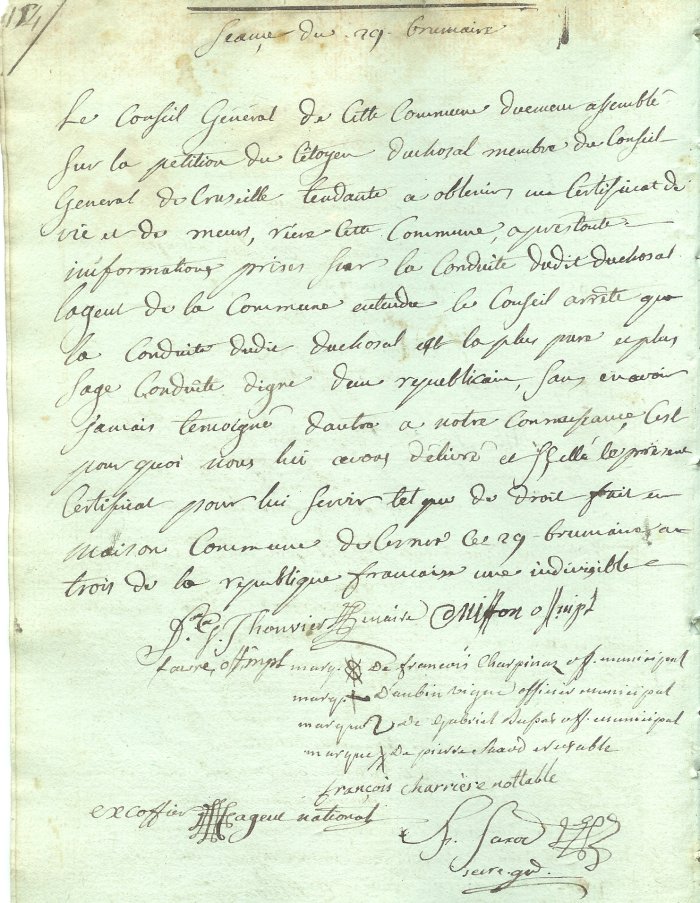 184
Seance du 29 brumaire
Le Conseil Général de Cette Commune duement assemblé
Sur la petition du Citoyen duchosal membre du Conseil
General de Cruseille tendante a obtenir un Certificat de
vie et de meurs, riere Cette Commune, apres toute
informations prises Sur la Conduite dudit duchosal
lagent de la Commune entendu le Conseil arrête que
la Conduite dudit duchosal est la plus pure et plus
sage Conduite digne dun republicain, sans en avoir
jamais temoigné dautre a notre Connaissance, C'est
pourquoi nous lui avons délivré et Scellé le présent
Certificat pour lui Servir tel que de droit fait en
maison Commune de Cernex Ce 29 brumaire an
trois de la republique francaise une indivisible
J. Thouvier maire Miffon off mpl
favre off mpl marq. De françois Charpinaz off. municipal
marque D'aubin officier municipal
marque De Gabriel off. municipal
marque De pierre
françois Charriere nottable
excoffier agent national
secre. gd.